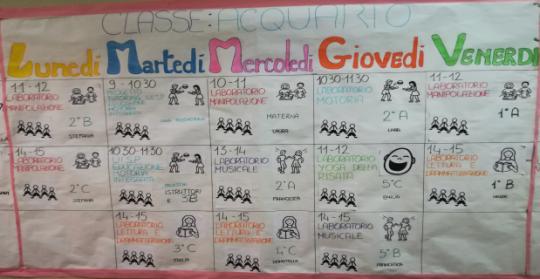 CLASSE: ACQUARIO
Lunedì Martedì Mercoledì Giovedì VENERDÌ
11-12
LABORATORIO
MANIPOLAZIONE
2°B
STEFANIA
9-10:30
10-11
LABORATORIO
MANIPOLAZIONE
MATERNA
10:30-11:30
LABORATORIO
MOTORIA
2°A
11-12
LABORATORIO
MANIPOLAZIONE
1°A
14-15
LABORATORIO
MANIPOLAZIONE
2°C
STEFANIA
10:30-11:30
U.I.S.P.
EDUCAZIONE
MOTORIA
INTEGRATA
ISTRUTTORI
3B
13-14
LABORATORIO
MUSICALE
2°A
FRANCESCA
11-12
LABORATORIO
YOGA DELLA
RISATA
5°C
14-15
LABORATORIO
LETTURA E
DRAMMATIZZAZIONE
1°B
14-15
LABORATORIO
LETTURA E
DRAMMATIZZAZIONE
3°C
14-15
LABORATORIO
LETTURA E
DRAMMATIZZAZIONE
4°C
14-15
LABORATORIO
MUSICALE
5°B
FRANCESCA